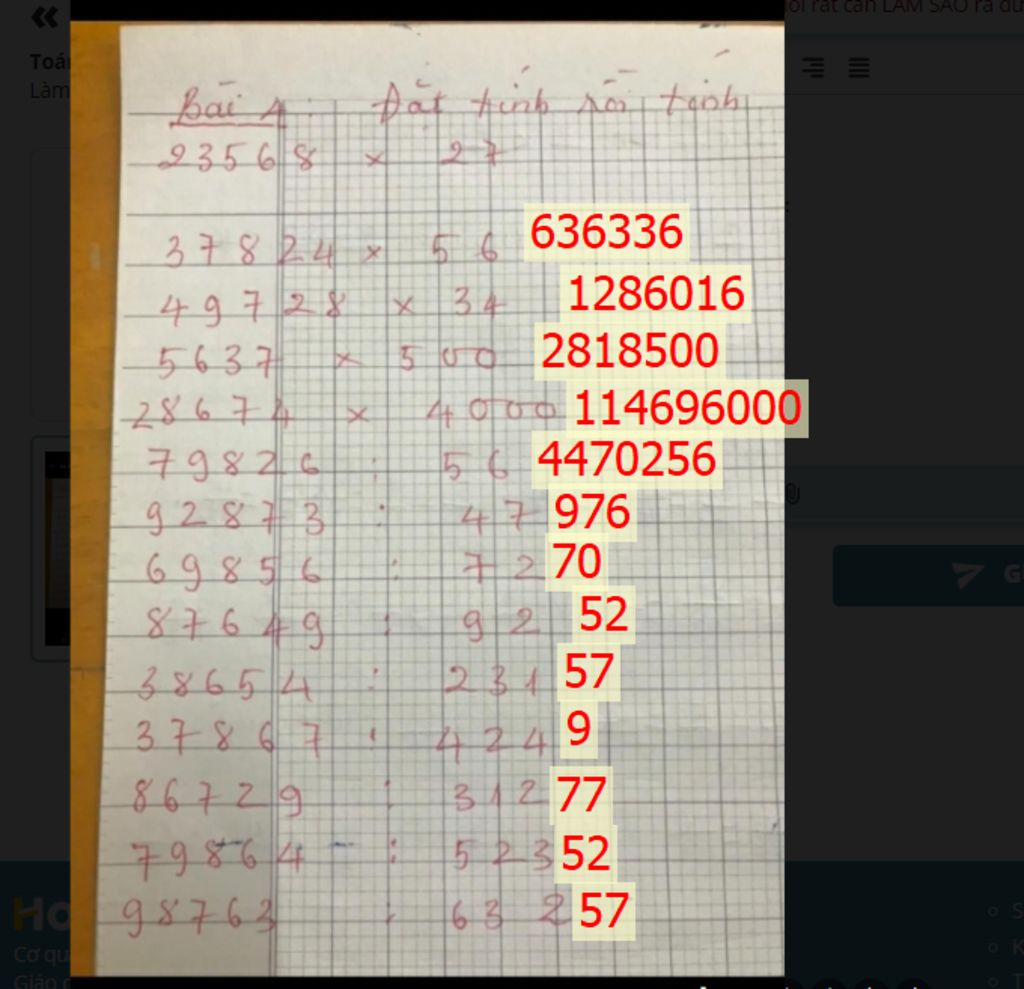 ôi rất cần LÀM SAO ra đư
Toá
Làm
Bài 1: Đặt tính rồi tính
23568 x 27
37824 x 56 636336
49728 x 34 1286016
5637 x 500 2818500
28674 x 4000 114696000
79826 : 56 4470256
92873 : 47 976
69856 : 72 70
G
87649 : 92 52
38654 : 231 57
37867 : 424 9
86729 : 312 77
79864 : 523 52
98763 : 632 57
HO
Cơ qu
Giáo
S
K
T